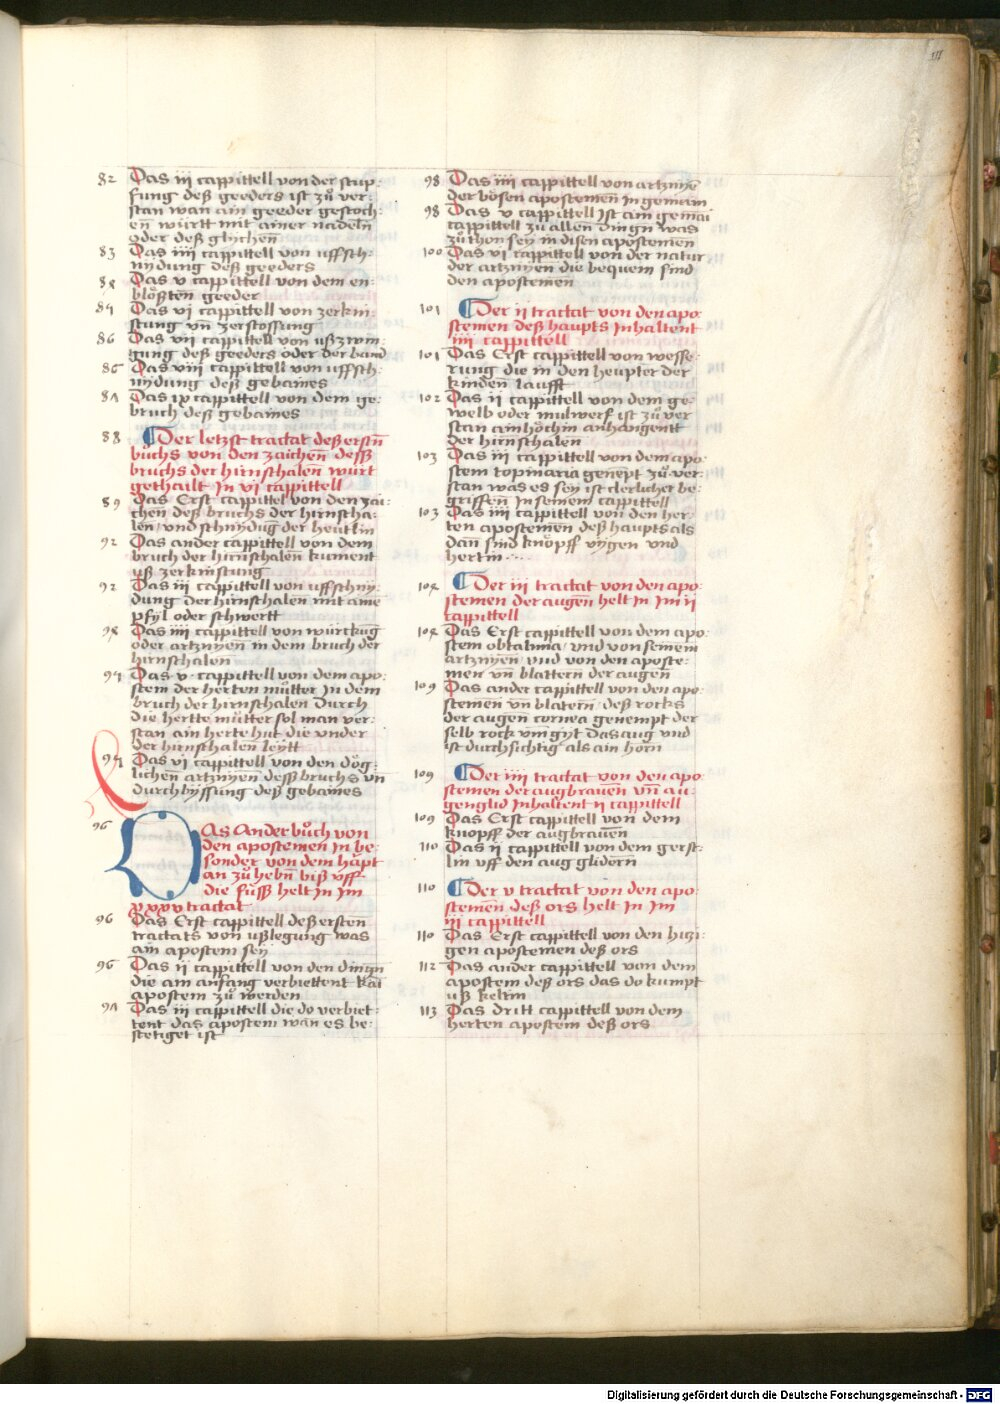 III
82 Das iij cappittell von der stup-
fung deß geeders ist zů ver-
stan wan ain geeder gestoch-
en württ mit ainer nadeln
oder deß glychen
83 Das iiij cappittell von uffsch-
nydung deß geeders
84 Das v cappittell von dem en-
blößten geeder
85 Das vj cappittell von zerkni-
stung vn̄ zerstossung
86 Das vij cappittell von ußzwin-
gung deß geeders oder der band
86 Das viij cappittell von uffsch-
nydung deß gebaines
87 Das ix cappittell von dem ge-
bruch deß gebaines
88 Der letzst tractat deß erstn̄
bůchs von den zaichen̄ deß
bruchs der hirnschalen̄ würt
gethailt In vi cappittell
89 Das Erst cappittel von den zai-
chen̄ deß bruchs der hirnscha-
len / vnd schnydūg der heutlin
92 Das ander cappittell von dem
bruch der hirnschalen̄ kument
uß zerknistung
92 Das iij cappittell von uffschny-
dung der hirnschalen̄ mit aime
pfyl oder schwertt
94 Das iiij cappittell von würckūg
oder artznyen in dem bruch der
hirnschalen
95 Das v cappittell von dem apo-
stem der herten můtter In dem
bruch der hirnschalen Durch
die hertte můtter sol man ver-
stan ain herte hut die vnder
der hirnschalen leytt
95 Das vj cappittell von den dög-
lichen artznyen̄ deß bruchs vn̄
durchbyssung deß gebaines
96 DAs Ander bůch von
den apostemen In be-
sonder von dem haupt
an zů hebn̄ biß uff
die füß helt In Im
xxxv tractat
96 Das Erst cappittell deß ersten
tractats von ußlegung was
ain apostem sey
96 Das ij cappittell von den dingn̄
die am anfang verbiettent kai
apostem zů werden
97 Das iij cappittell die do verbiet-
tent das apostem wan̄ es be-
stetiget ist
98 Das iiij cappittell von artznyē
der bösen apostemen In gemain
98 Das v cappittell Ist ain gemai
cappittell zů allen Dingn was
zů thon sey in disen apostemen
100 Das vi cappittell von der natur
der artznyen die bequem sind
den apostemen
101 Der ij tractat von den apo-
stemen deß haupts Inhaltent
iiij cappittell
101 Das Erst cappittell von wesse-
rung die in den heupter der
kinden laufft
102 Das ij cappittell von dem ge-
welb oder mulwerf ist zů ver
stan ain höchin anhangentt
der hirnschalen
103 Das iij cappittell von dem apo
stem topinaria genēpt zů ver-
stan was es sey ist clerlicher be-
griffen In seinem cappittell
103 Das iiij cappittell von den her-
ten apostemen deß haupts als
dan̄ sind knöpff vygen vnd
hertin
104 Der iij tractat von den apo-
stemen der augen helt In Im ij
cappittell
104 Das Erst cappittell von dem apo-
stem obtalmia / vnd von seinem
artznyen / vnd von den aposte-
men vn̄ blattern der augen̄
109 Das ander cappittell von den apo-
stemen vn̄ blatern̄ deß rocks
der augen cornea genempt der
selb rock vm̄gyt das aug vnd
ist durchsichtig als ain horn
109 Der iiij tractat von den apo-
stemen der augbrauen vn̄ au-
genglid Inhaltent ij cappittell
109 Das Erst cappittell von dem
knopff der augbrauen̄
110 Das ij cappittell von dem gerst-
lin uff den aug glidern
110 Der v tractat von den apo-
stemen deß ors helt In Im
iij cappittell
110 Das Erst cappittell von den hizi-
gen apostemen deß ors
112 Das ander cappittell von dem
apostem deß ors das do kumpt
uß keltin
113 Das dritt cappittell von dem
herten apostem deß ors
Digitalisierung gefördert durch die Deutsche Forschungsgemeinschaft - DFG